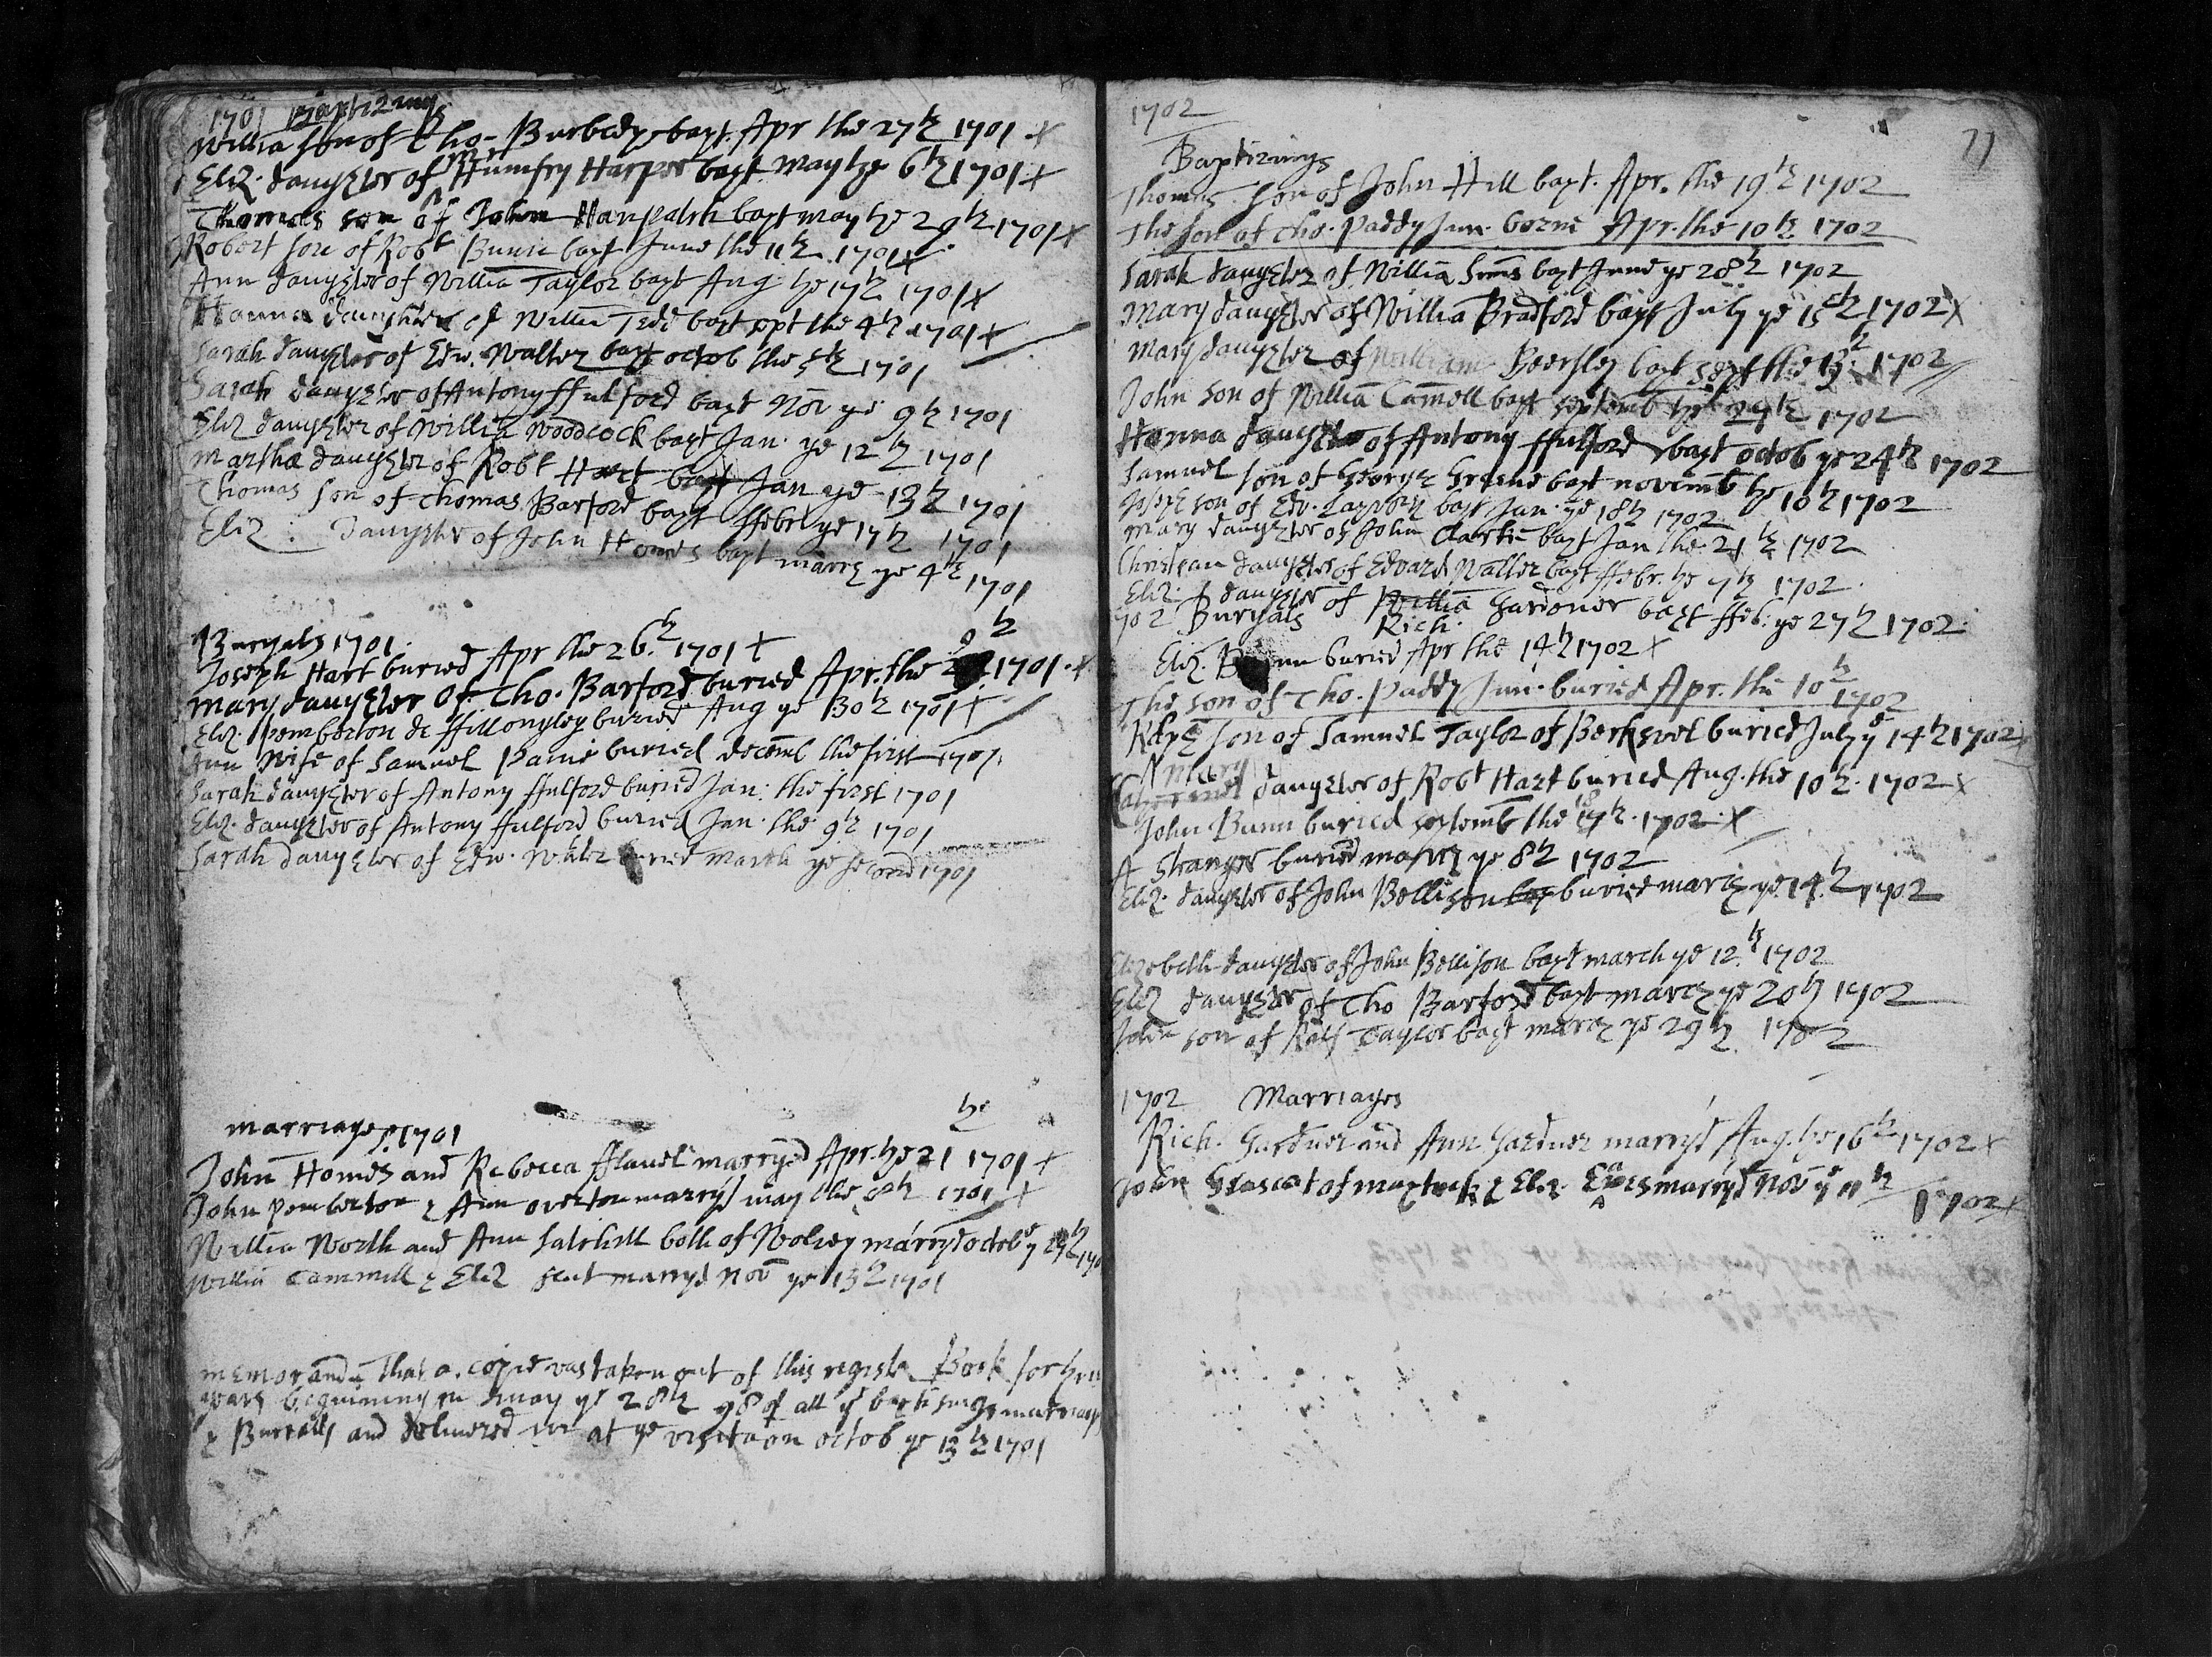 1701 Baptizings
Willia son of Tho. Burbidg bapt. Apr the 27th 1701 x
Eliz. daughter of Mr Humfry Harper bapt May the 6th 1701 x
Thomas son of John bapt may the 29th 1701 x
Robert son of Robt Bunn bapt June the 11th 1701 x
Ann daughter of Willia Taylor bapt Aug the 17th 1701 x
Hanna daughter of Willia Tedd bapt the 4th 1701 x
Sarah daughter of Edw. Walter bapt octob the 5th 1701
Sarah daughter of Antony ffulford bapt Nov ye 9th 1701
Eliz daughter of Willia Woodcock bapt Jan. ye 12th 1701
Martha daughter of Robt Hart bapt Jan ye 13th 1701
Thomas son of Thomas Barford bapt ffebr ye 17th 1701
Eliz: daughter of John Homes bapt march ye 4th 1701
Buryals 1701
Joseph Hart buried Apr the 26th 1701 x
Mary daughter of Tho. Barford buried Apr. the 9th 1701 x
Eliz. Pemberton de ffillongley buried Aug ye 30th 1701 x
Ann Wife of Samuel Paine buried decemb the first 1701
Sarah daughter of Antony ffulford buried Jan: the first 1701
Eliz. daughter of Antony ffulford buried Jan. the 9th 1701
Sarah daughter of Edw. Walter buried march ye second 1701
marriages 1701
John Homes and Rebecca fflavel marryed Apr. the 21 1701 x
John Pemberton & Ann Overton marryd may the 8th 1701 x
Willia North and Ann both of Wolvey marryd octob ye
Willia Cammill & Eliz marryd Nov ye 13th 1701
memorandu That a copie was taken out of this register Book for three
years beginning in may ye 28th 98 of all ye baptisings marriages
& Burialls and delivered in at ye visitation octob ye 13th 1701
1702
71
Baptizings
Thomas son of John Hill bapt. Apr. the 19th 1702
The son of Tho. Paddy Jun. borne Apr. the 10th 1702
Sarah daughter of Willia Sims bapt June ye 28th 1702
Mary daughter of Willia Bradford bapt July ye 15th 1702 x
Mary daughter of William Beersley bapt Sept the 13th 1702
John son of Willia Camell bapt Septemb the 24th 1702
Hanna daughter of Antony ffulford bapt octob ye 24th 1702
Samuel son of George Greene bapt novemb the 10th 1702
son of Edw. bapt Jan. ye 18th 1702
Mary daughter of John Clarke bapt Jan the 21th 1702
Christian daughter of Edward Walter bapt ffebr. the 7th 1702
Eliz: daughter of Willia Gardoner bapt ffeb: ye 27th 1702
702 Buryals Rich.
Eliz. Bunn buried Apr the 14th 1702 x
The son of Tho. Paddy Jun. buried Apr. the 10th 1702
Ralph son of Samuel Taylor of Berkswel buried July ye 14th 1702 x
Mary
Catherine daughter of Robt Hart buried Aug. the 10th 1702 x
John Bunn buried septemb the 17th 1702 x
A Stranger buried march ye 8th 1702
Eliz. daughter of John Bellison bap buried march ye 14th 1702
Elizebeth daughter of John Bellison bapt march ye 12th 1702
Eliz daughter of Tho Barford bapt march ye 20th 1702
John son of Ralf Taylor bapt march ye 29th 1702
1702 Marriages
Rich. Gardner and Ann Gardner marryd Aug. the 16th 1702 x
John of & Eliz. marryd Nov ye 11th 1702 x